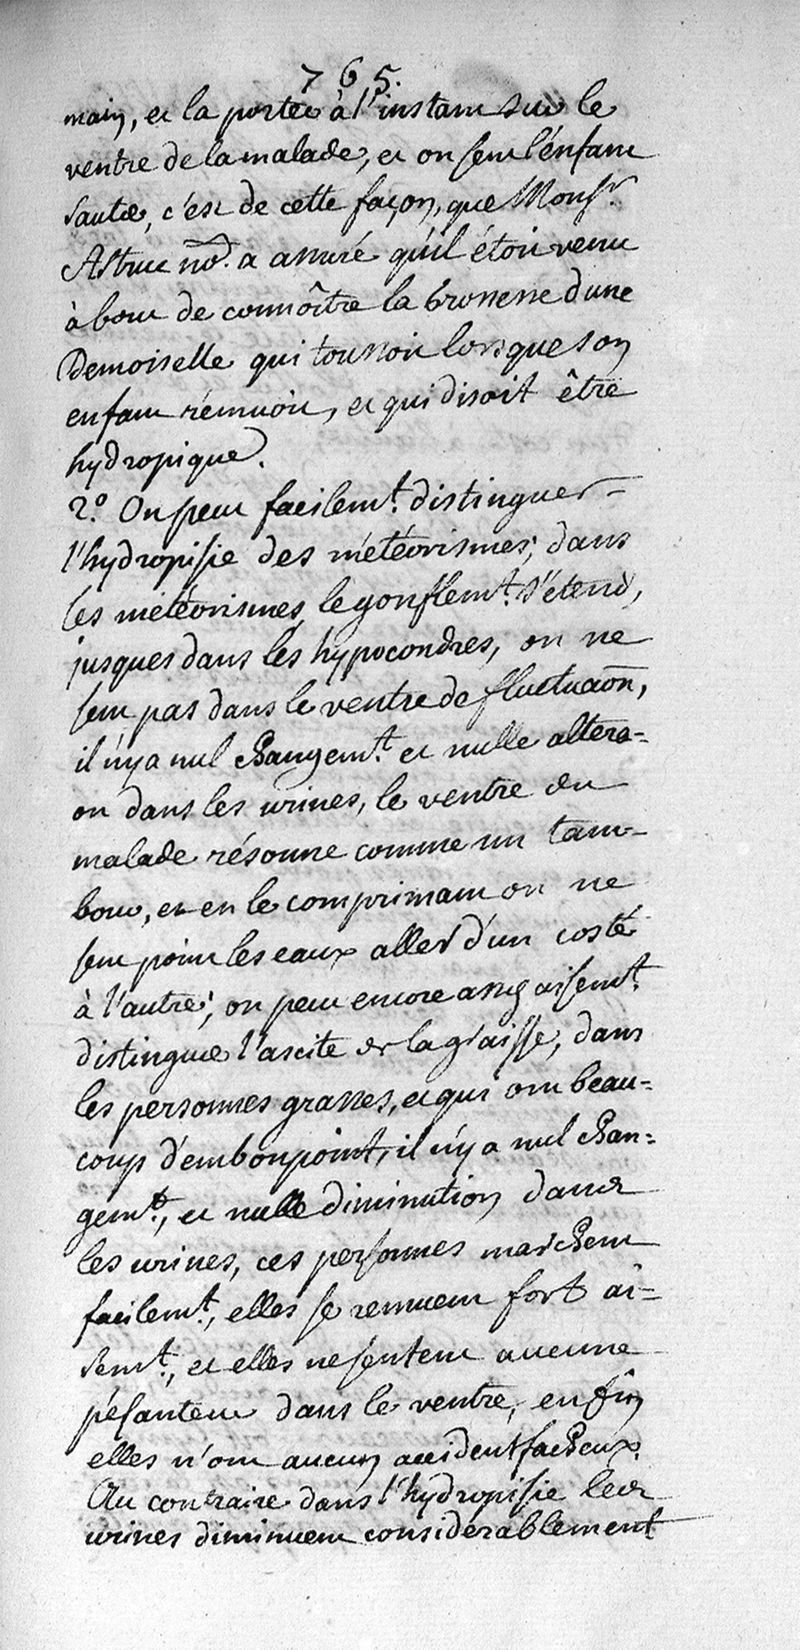 765.
main, et la porter à l'instant sur le
ventre de la malade, et on sent l'énfant
sauter, c'est de cette façon, que Monsr.
Astruc no͞e. a assuré qu'il étoit venu
à bout de connoître la grossesse d'une
Demoiselle qui toussoit lorsque son
enfant rémuoit, et qui disoit être
hydropique.
2.° On peut facilemt. distinguer
l'hydropisie des météorismes; dans
les météorismes le gonflemt. s'étend,
jusques dans les hypocondres, on ne
sent pas dans le ventre de fluctuaōn,
il n'y a nul changemt. et nulle altera=
on dans les urines, le ventre du
malade résonne comme un tam=
bour, et en le comprimant on ne
sent point les eaux aller d'un costé
à l'autre; on peut encore assez aisemt.
distinguer l'ascite de la graisse, dans
les personnes grasses, et qui ont beau=
coup d'embonpoint, il n'y a nul chan=
gemt., et nulle diminution dans
les urines, ces personnes marchent
facilemt., elles se remuent fort ai=
semt., et elles ne sentent aucune
pésanteur dans le ventre, enfin
elles n'ont aucun accident facheux.
Au contraire dans l'hydropisie les
urines diminuent considerablement